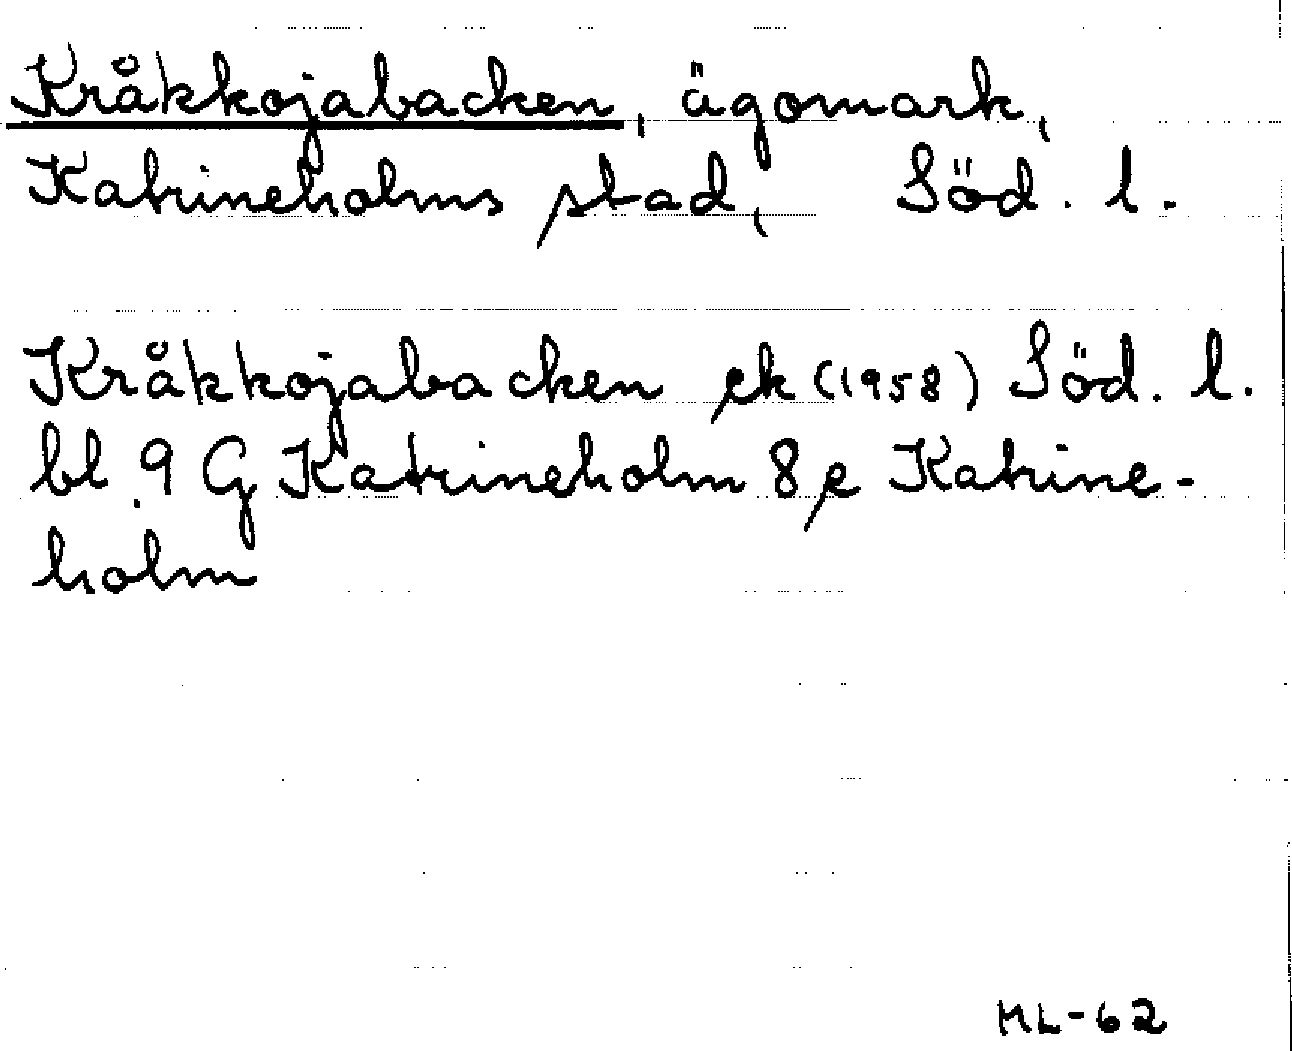 Kråkkojabacken, ägomark,
Katrineholms stad, Söd. l.
Kråkkojabacken ek (1958) Söd. l.
bl. 9 G Katrineholm 8 e Katrine-
holm
ML-62